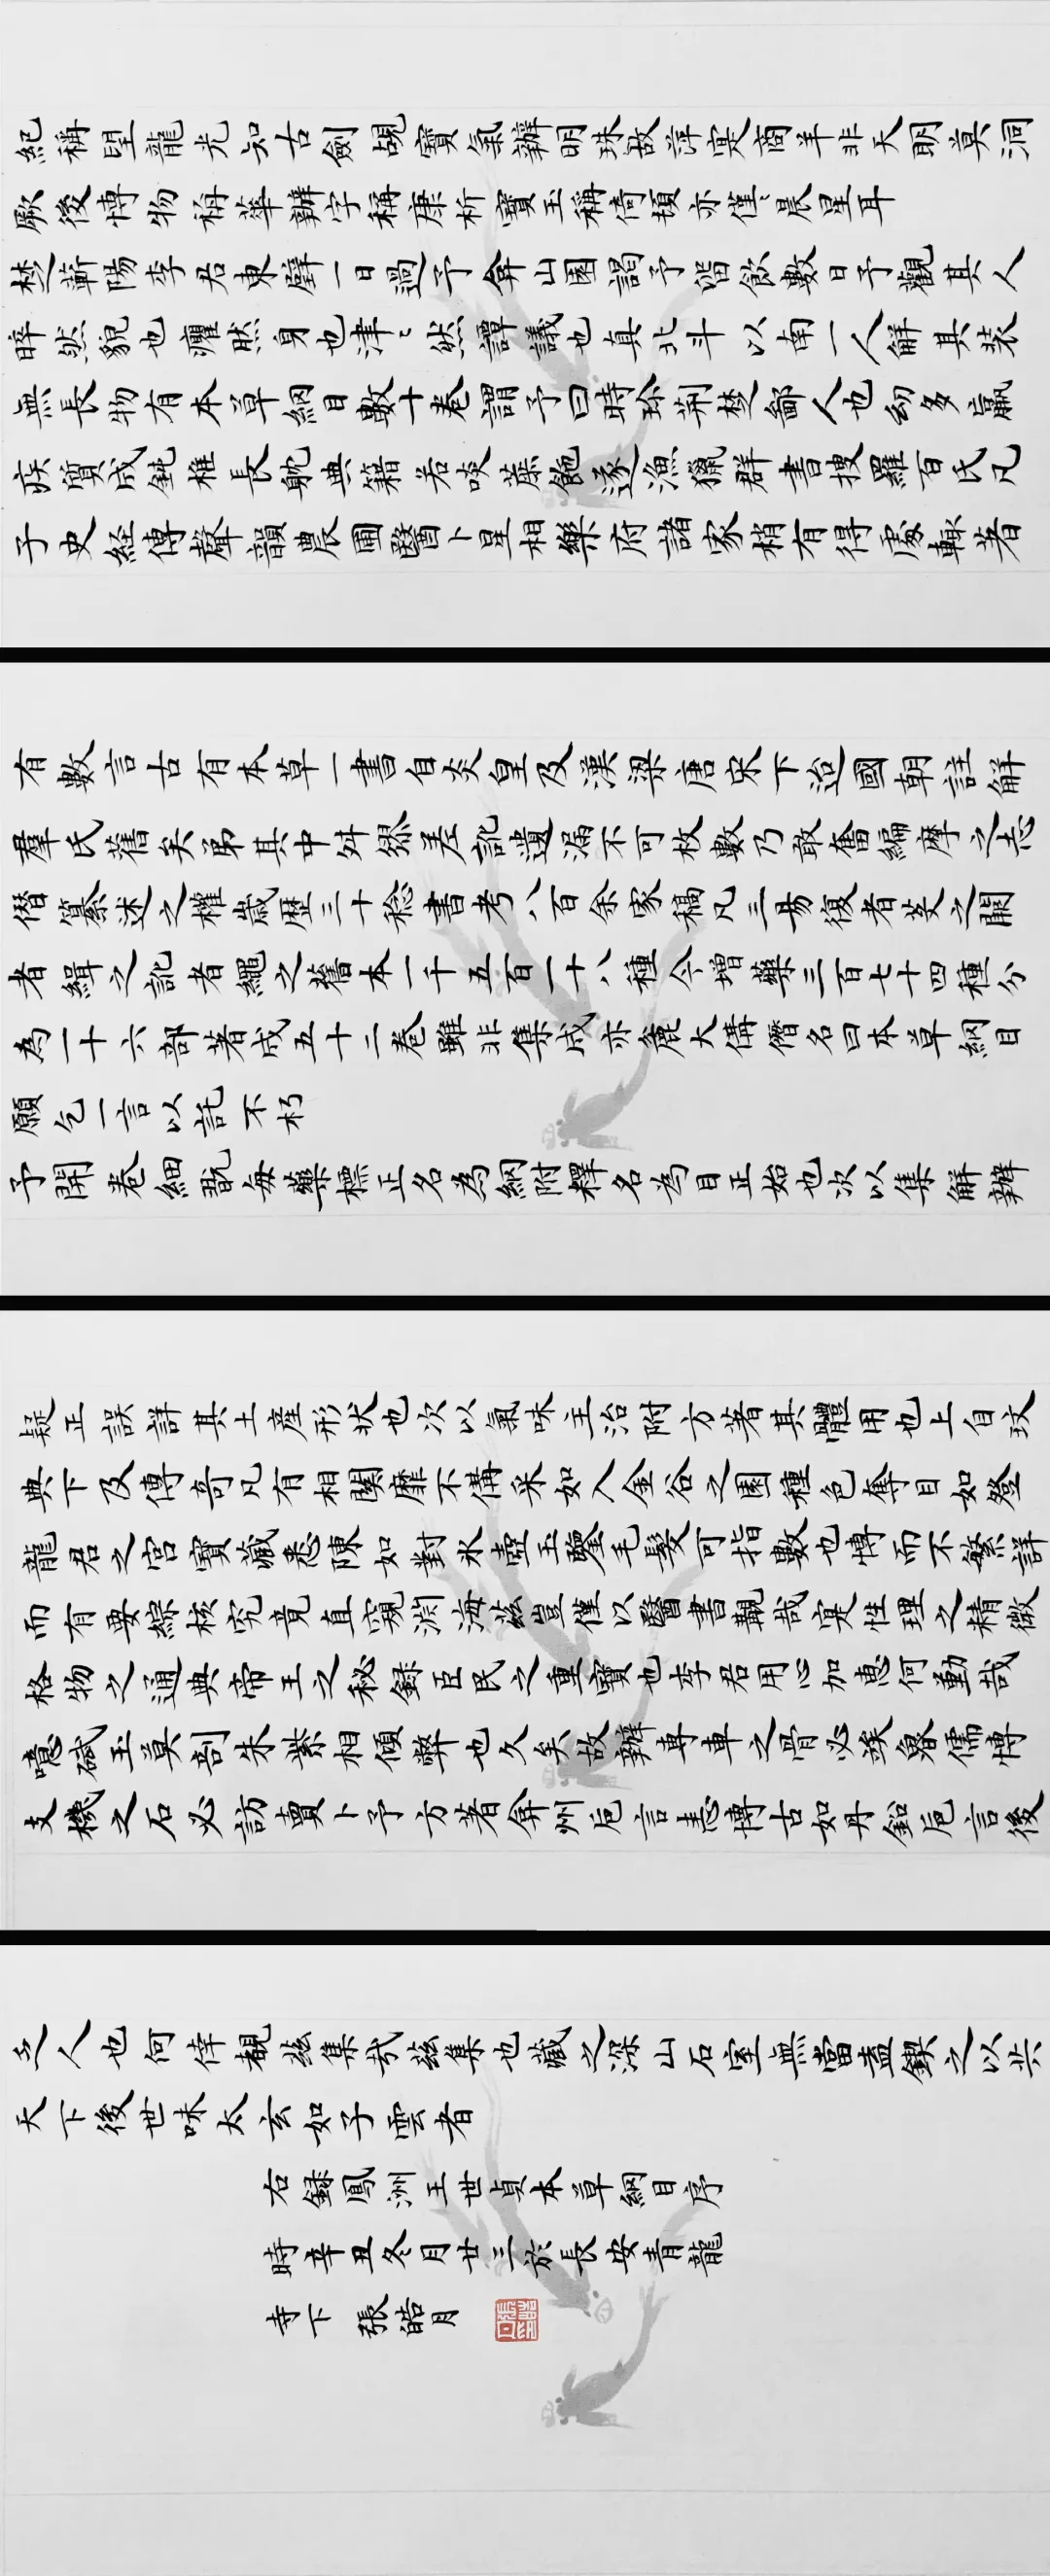 紀稱望龍光知古劍覘寶氣辨明珠故萍寔商羊非天明莫洞
厥後博物稱華辨字稱康析寶玉稱倚頓亦僅〻晨星耳
楚蘄陽李君東璧一日過予弇山園謁予留飲數日予觀其人
睟然貌也癯然身也津〻然譚議也真北斗以南一人解其裝
無長物有本草綱目數十卷謂予曰時珍荆楚鄙人也幼多羸
疾質成鈍椎長躭典籍若啖蔗飴遂漁獵群書搜羅百氏凡
子史経傳聲韻農圃醫卜星相樂府諸家稍有得處輙著
有數言古有本草一書自炎皇及漢梁唐宋下迨國朝註解
羣氏舊矣弟其中舛繆差訛遺漏不可枚數乃敢奮編摩之志
僭纂述之權歲歴三十稔書考八百余家稿凡三易復者芟之闕
者緝之訛者繩之舊本一千五百一十八種今增藥三百七十四種分
為一十六部著成五十二卷雖非集成亦麄大備僭名曰本草綱目
願乞一言以託不朽
予開卷細翫每藥標正名為綱附釋名為目正始也次以集解辨
疑正誤詳其土産形狀也次以氣味主治附方著其體用也上自坟
典下及傳奇凡有相関靡不備采如入金谷之園種色奪目如登
龍君之宫寶藏悉陳如對氷壺玉鑒毛髮可指數也博而不繁詳
而有要綜核究竟直窺渕海茲豈僅以醫書覯哉寔性理之精微
格物之通典帝王之秘録臣民之重寶也李君用心加惠何勤哉
噫碔玉莫剖朱紫相傾弊也久矣故辨專車之骨必竢魯儒博
支機之石必訪賣卜予方著弇州卮言恚博古如丹鉛卮言後
乏人也何倖覩茲集哉茲集也藏之深山石室無當盍鍥之以共
天下後世味太玄如子雲者
右録鳳洲王世貞本草綱目序
時辛丑冬月廿三於長安青龍
寺下 張皓月